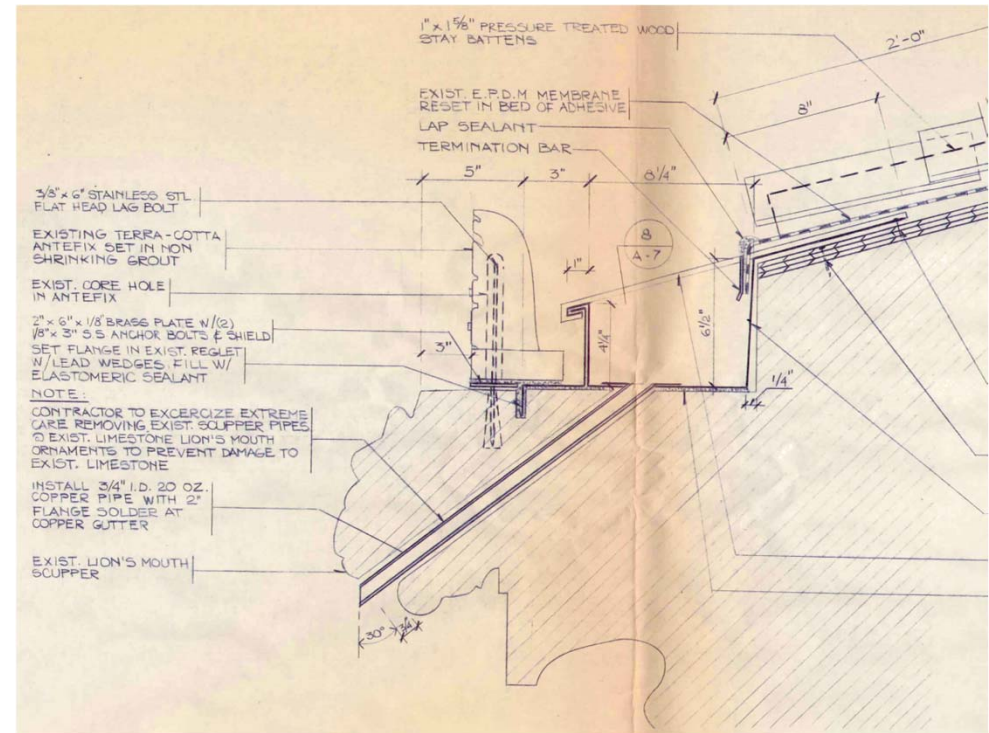 1" x 1 5/8" PRESSURE TREATED WOOD
STAY BATTENS
2'-0"
EXIST. E.P.D.M MEMBRANE
RESET IN BED OF ADHESIVE
8"
LAP SEALANT
TERMINATION BAR
5"
3"
8 1/4"
3/8" x 6" STAINLESS STL
FLAT HEAD LAG BOLT
EXISTING TERRA-COTTA
ANTEFIX SET IN NON
SHRINKING GROUT
8
A-7
1"
EXIST. CORE HOLE
IN ANTEFIX
2" x 6" x 1/8" BRASS PLATE W/(2)
1/8" x 3" S.S ANCHOR BOLTS & SHIELD
SET FLANGE IN EXIST. REGLET
W/LEAD WEDGES. FILL W/
ELASTOMERIC SEALANT
3"
4 1/4"
6 1/2"
1/4"
NOTE:
CONTRACTOR TO EXCERCIZE EXTREME
CARE REMOVING EXIST. SCUPPER PIPES
@ EXIST. LIMESTONE LION'S MOUTH
ORNAMENTS TO PREVENT DAMAGE TO
EXIST. LIMESTONE
INSTALL 3/4" I.D. 20 OZ.
COPPER PIPE WITH 2"
FLANGE SOLDER AT
COPPER GUTTER
EXIST. LION'S MOUTH
SCUPPER
30°
3/4"